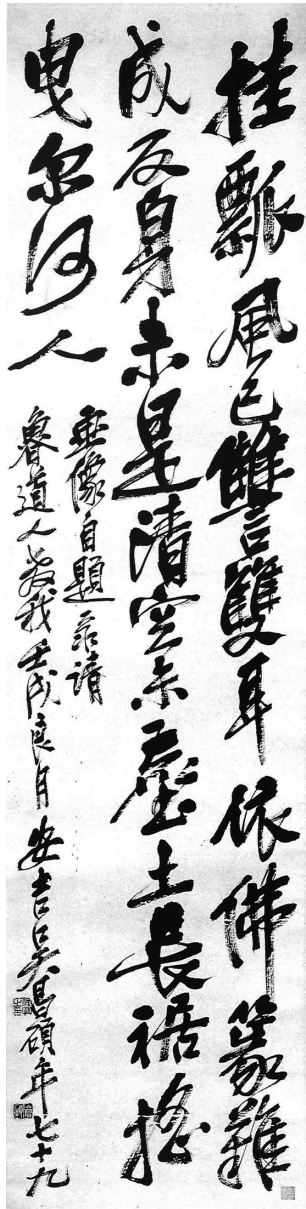 挂瓢風已讎雙耳依佛篆難
成反身未是清空未塵土長裾搖
曳尔何人
畫像自題录請
魯道人教我壬戌良月安吉吳昌碩年七十九